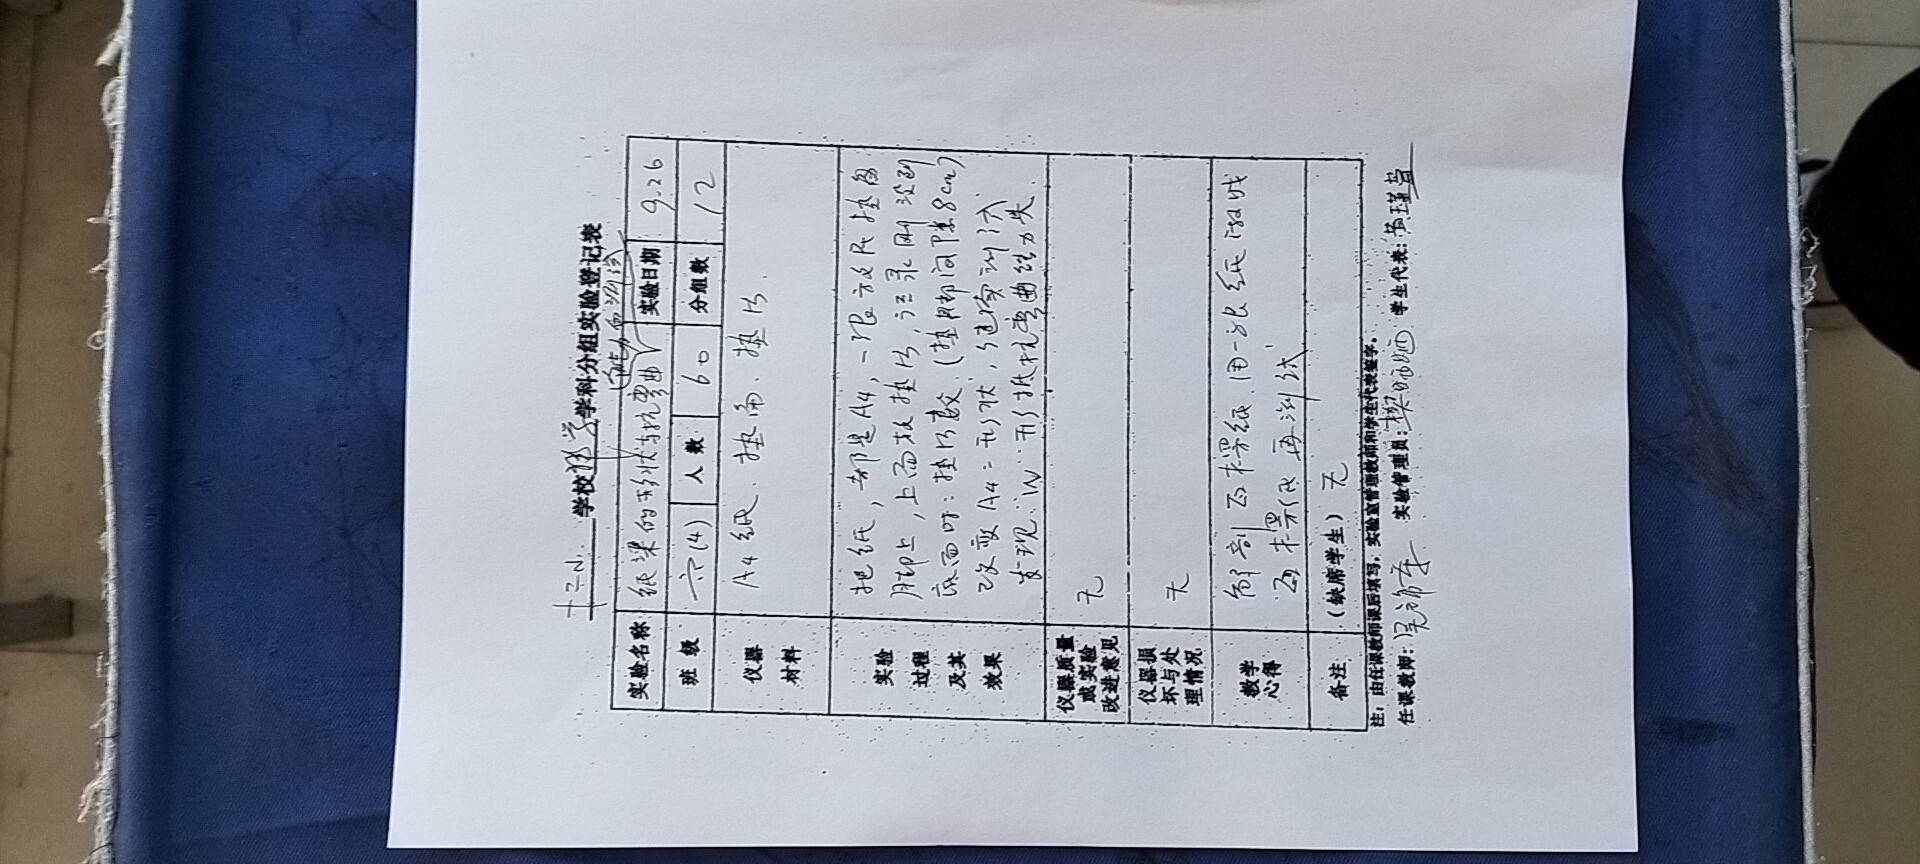 学校科学学科分组实验登记表
实验名称 纸梁的形状与抗弯曲能力的测试 实验日期 9.26
班级 六(4) 人数 60 分组数 12
仪器材料 A4纸、垫高、垫片、
实验过程及其效果
把纸,都是A4,一张放
脚上,上面放垫片,记录刚
底面时:垫片数(垫脚间隙8cm)
改变A4=形状,继续测试
发现:W形抵抗弯曲
仪器质量或实验改进意见 无
仪器损坏与处理情况 无
教学心得
解剖瓦楞纸,用一张纸
瓦楞纸再测试
备注 (缺席学生) 无
注:由任课教师课后填写,实验室管理教师和学生代表签字。
任课教师: 实验管理员: 学生代表: